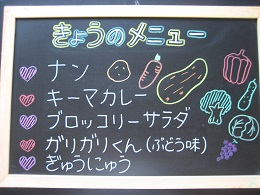 きょうのメニュー
ナン
キーマカレー
ブロッコリーサラダ
ガリガリくん(ぶどう味)
ぎゅうにゅう